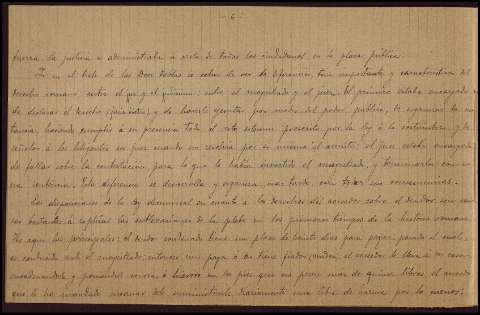 - 6 -
la justicia se administraba á vista de todos los ciudadanos en la plaza pública.
Ya en el texto de las Doce Tablas se echa de ver la diferencia, tan importante y característica del
derecho romano, entre el jus y el judicium; entre el magistrado y el juez. El primero estaba encargado
de declarar el derecho (juris dictio), y de hacerlo ejecutar por medio del poder público, de organizar la ins-
tancia, haciendo cumplir á su presencia todo el rito solemne prescrito por la ley ó la costumbre, y de
señalar á los litigantes un juez cuando no resolvía por sí mismo el asunto; el juez estaba encargado
de fallar sobre la contestación, para lo que le había investido el magistrado, y terminarla con
una sentencia. Esta diferencia se desarrolla y organiza más tarde con todas sus consecuencias.
Las disposiciones de la ley decemviral en cuanto á los derechos del acreedor sobre el deudor, son
bastante á explicar las sublevaciones de la plebe en los primeros tiempos de la historia romana.
He aquí las principales: el deudor condenado tiene un plazo de treinta días para pagar; pasado el cual,
es conducido ante el magistrado; entonces, si no paga ó no tiene fiador (vindex), el acreedor se lo lleva á su casa
encadenándole y poniéndole correa, ó hierros en los pies que no pesen más de quince libras; el acreedor
que le ha mandado suministrarle diariamente una libra de harina por lo menos;